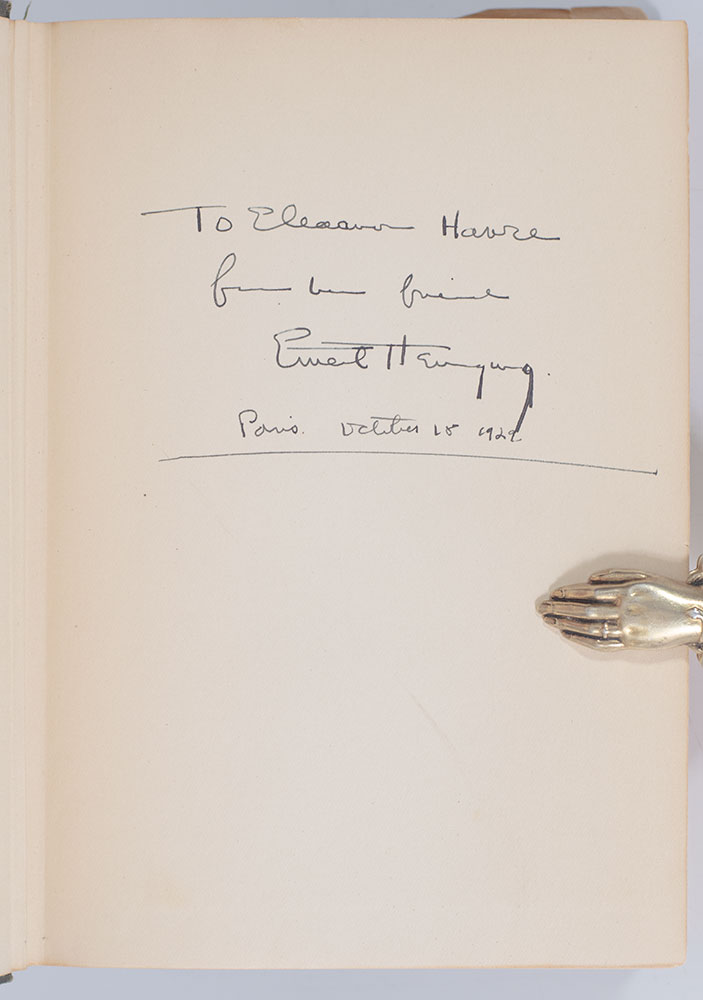 To Eleanor Havre
from her friend
Ernest Hemingway.
Paris. October 15 1929